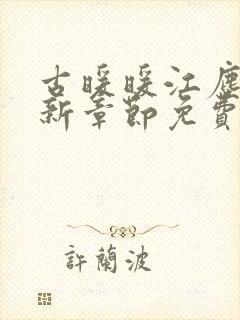 古暖暖江塵
新章節免費
許蘭波